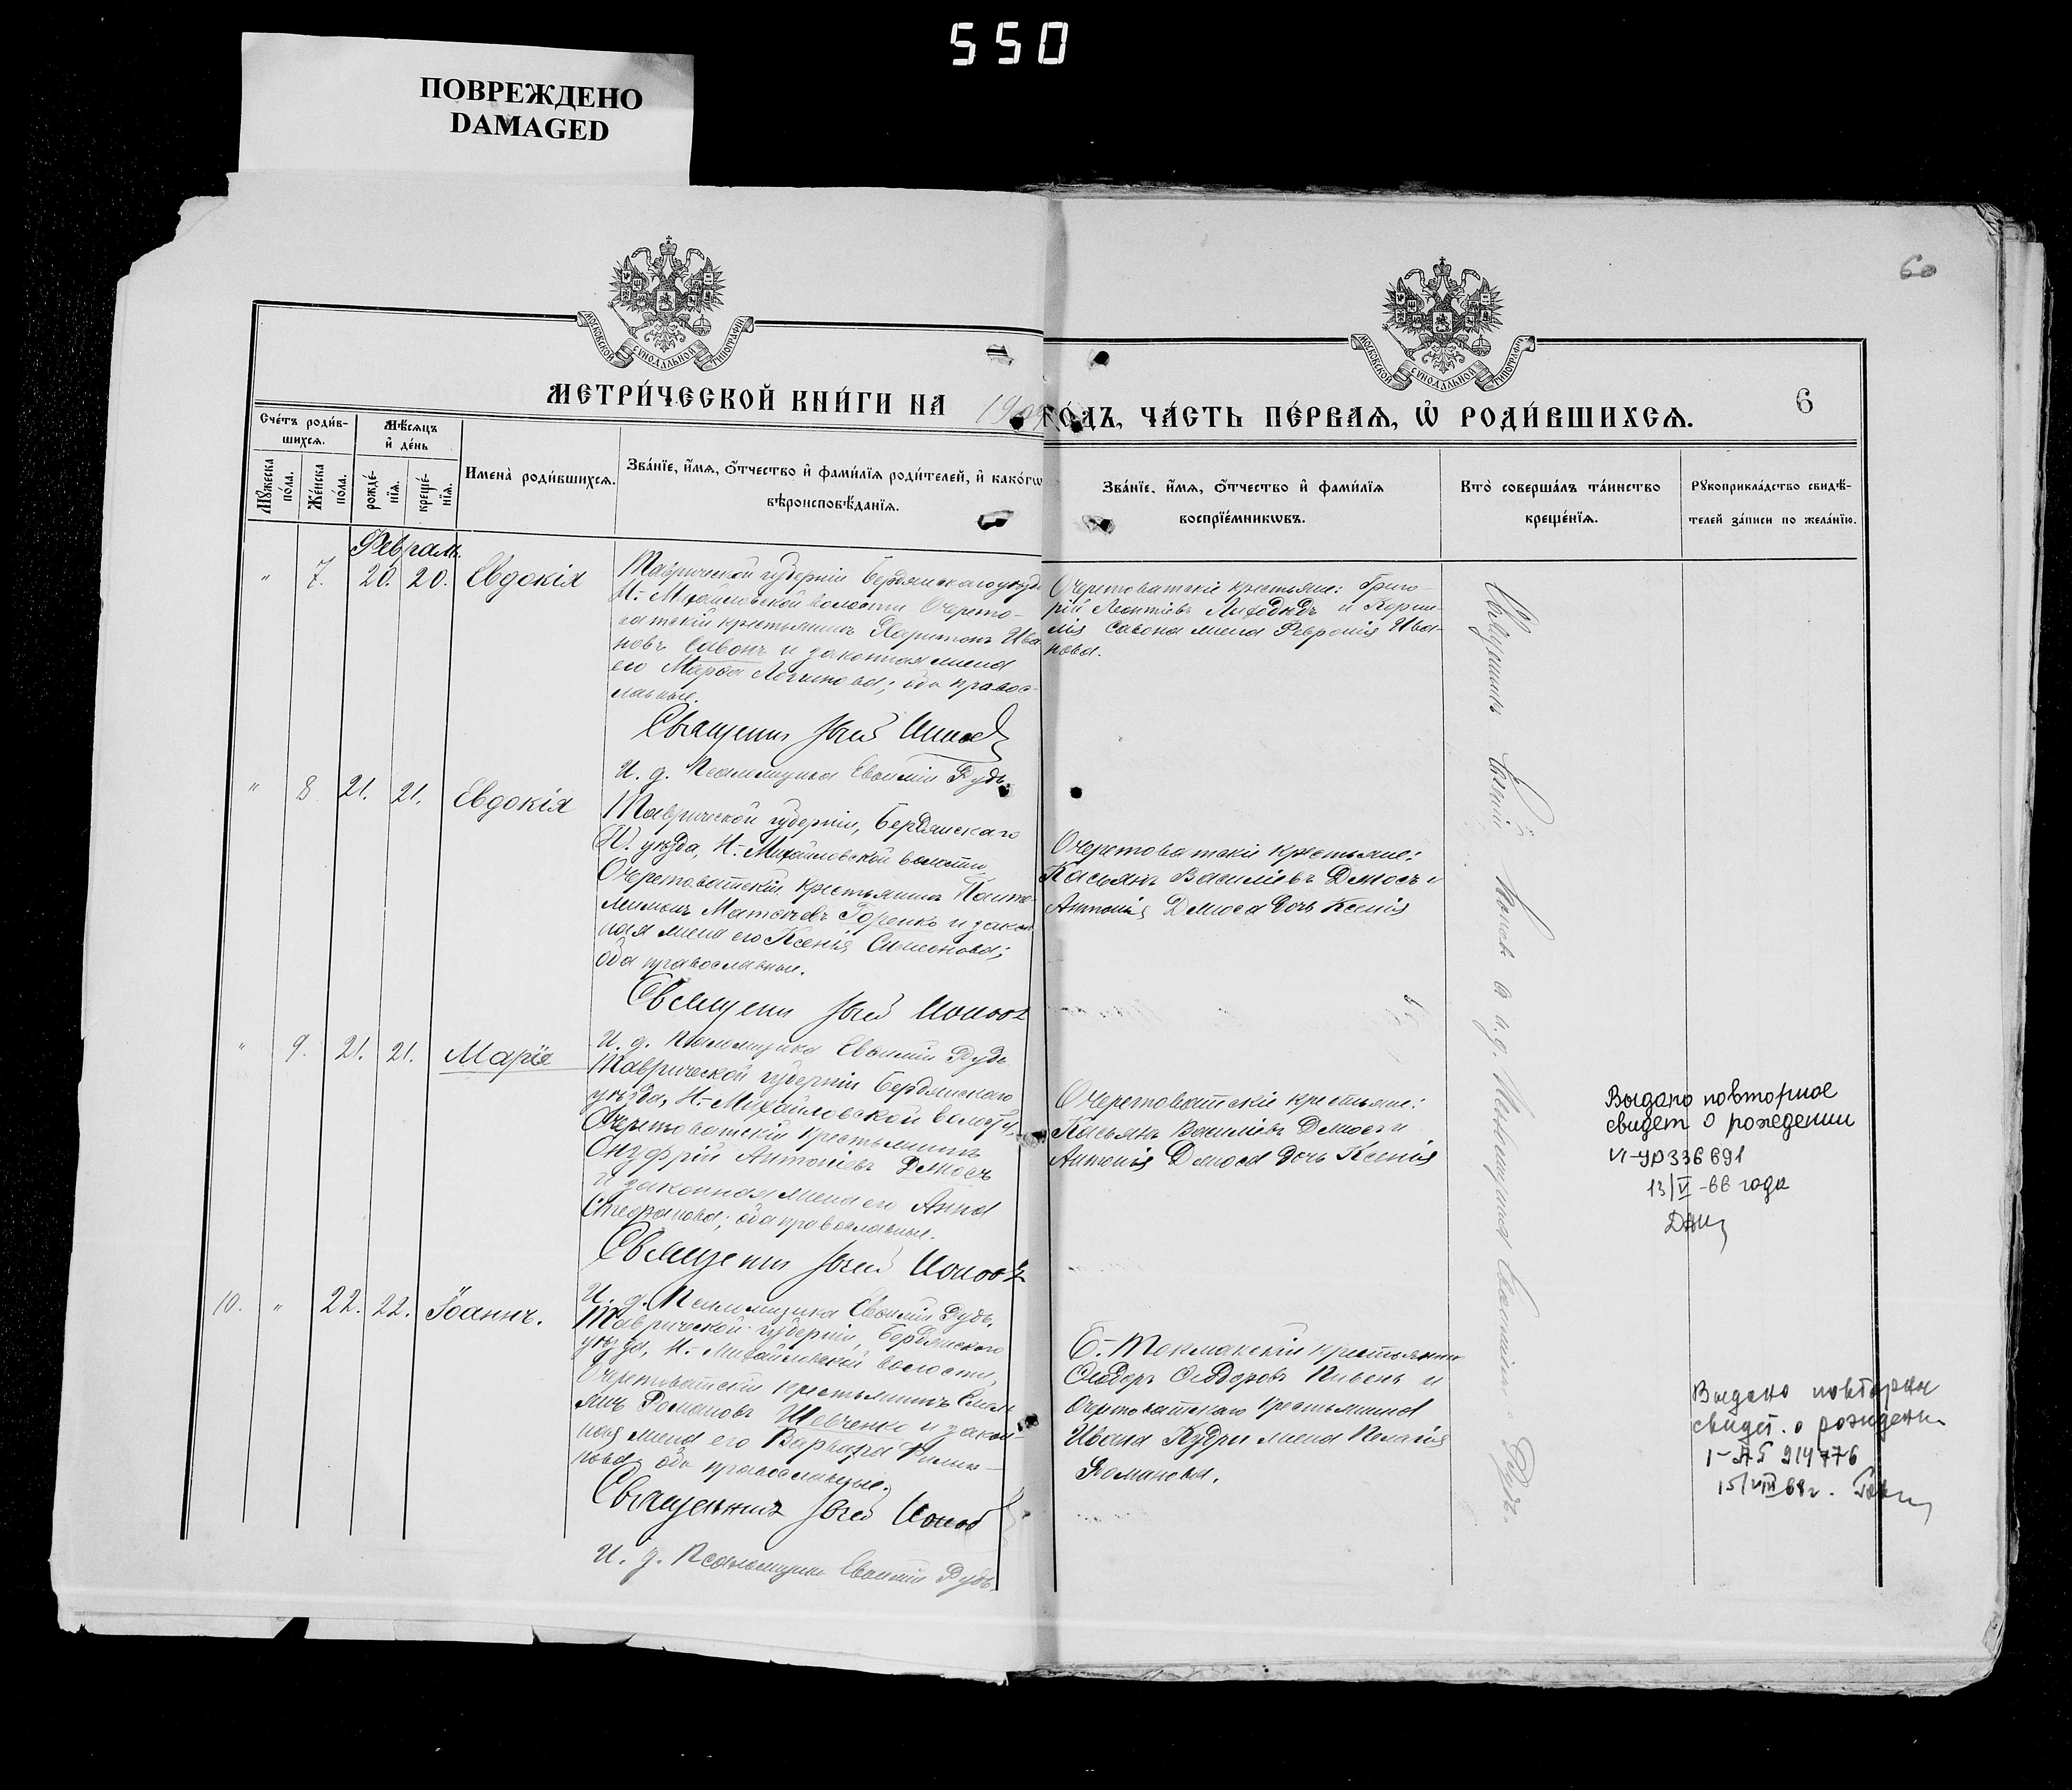 550
ПОВРЕЖДЕНО
DAMAGED
60
МОСКОВСКОЙ СУНОДАЛЬНОЙ ТИПОГРАФІИ
МОСКОВСКОЙ СУНОДАЛЬНОЙ ТИПОГРАФІИ
МЕТРИ́ЧЕСКОЙ КНИ́ГИ НА 1909
ГО́ДЪ, ЧА́СТЬ ПЕ́РВАЯ, Ѡ҆ РОДИ́ВШИХСЯ.
6
Сче́тъ роди́в-
шихся.
Мѣ́сяцъ
и҆ де́нь
Мꙋ́жеска
по́ла.
Же́нска
по́ла.
рожде́-
нїя.
креще́-
нїя.
Имена̀ роди́вшихся.
Зва́нїе, и҆́мя, о҆́тчество и҆ фами́лїя роди́телей, и҆ како́гѡ
вѣроисповѣ́данїя.
Зва́нїе, и҆́мя, о҆́тчество и҆ фами́лїя
воспрїе́мникѡвъ.
Кто̀ соверша́лъ та́инство
креще́нїя.
Рꙋкоприкла́дство свидѣ́-
телей за́писи по жела́нїю.
Февраль.
" 7. 20. 20. Евдокія
Таврической губерніи Бердянскаго уѣзда
Н.-Михайловской волости Очерето-
ватскій крестьянинъ Харитонъ Ива
новъ Савонъ и законная жена
его Марѳа Логинова; оба правос-
лавные.
Священ. Іоаннъ
И. д. Псаломщика Евѳимій Рудь.
Очеретоватскіе крестьяне: Григо-
рій Леонтіевъ Лиходѣдъ и Корни-
лія Савона жена Февронія Ива-
нова.
" 8 21. 21. Евдокія
Таврической губерніи, Бердянскаго
уѣзда, Н.-Михайловской волости
Очеретоватскій крестьянинъ Панте-
леимонъ Матѳеевъ Горенко и закон
ная жена его Ксенія Симеонова;
оба православные.
Священ.
И. д. Псаломщика Евѳимій Рудь
Очеретоватскіе крестьяне:
Касьянъ Василіевъ Демосъ и
Антонія Демоса дочь Ксенія
" 9. 21. 21. Марія
Таврической губерніи Бердянскаго
уѣзда, Н.-Михайловской волости,
Очеретоватскій крестьянинъ
Онуфрій Антоніевъ Демосъ
и законная жена его Анна
Стефанова; оба православные.
Священ.
И. д. Псаломщика Евѳимій Рудь.
Очеретоватскіе крестьяне:
Касьянъ Василіевъ Демосъ и
Антонія Демоса дочь Ксенія
Выдано повторное
свидет о рождении
VI-УР 336691
13/V-66 года
10. " 22. 22. Іоаннъ.
Таврической губерніи, Бердянскаго
уѣзда, Н.-Михайловской волости,
Очеретоватскій крестьянинъ
Романовъ Шевченко и закон-
ная жена его Варвара Филип-
пова; оба православные.
Священникъ
И. д. Псаломщика Евѳимій Рудь.
Б.-Токмакскій крестьянинъ
Ѳеодоръ Ѳеодоровъ Пивень и
Очеретоватскаго крестьянина
Ивана Кудри жена Пелагія
Романова.
Выдано повторн
свидет. о рожден.
I-АП 214776
15/VIII 68г.
Священникъ и. д. Псаломщика Евѳимій Рудь.